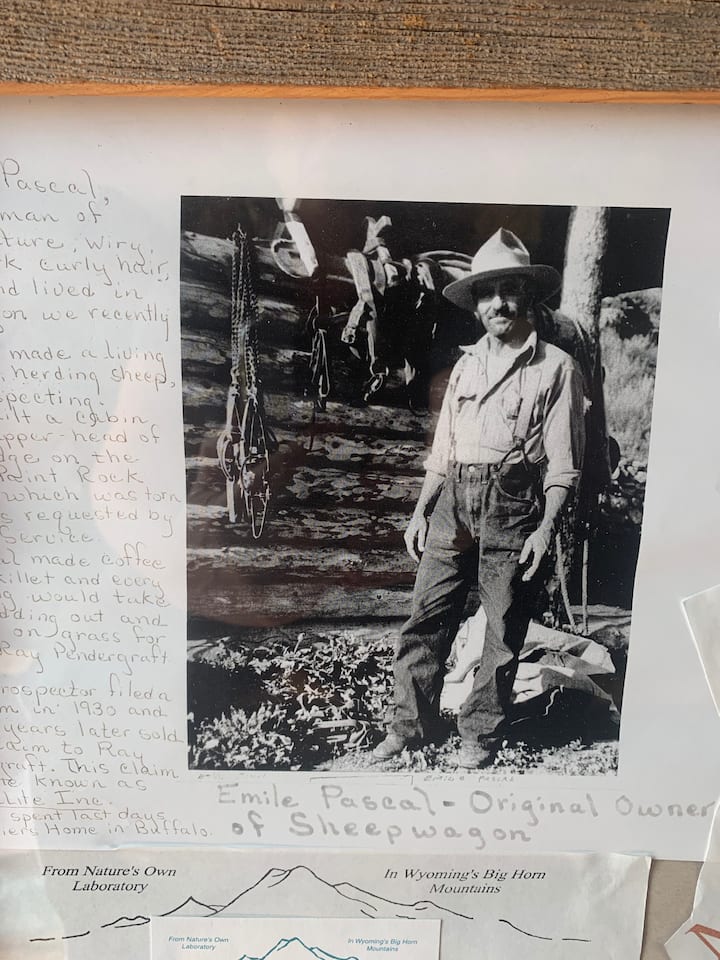 Pascal,
man of
ture, wiry,
k curly hair,
nd lived in
on we recently
made a living
herding sheep,
specting.
ilt a cabin
pper-head of
dge on the
Paint Rock
which was torn
s requested by
Service.
al made coffee
killet and every
g would take
dding out and
on grass for
Ray Pendergraft
rospector filed a
m in 1930 and
years later sold
laim to Ray
graft. This claim
me known as
Lite Inc.
spent last days
iers Home in Buffalo.
EMILE PASCAL
Emile Pascal - Original Owner
of Sheepwagon
From Nature's Own
Laboratory
In Wyoming's Big Horn
Mountains
From Nature's Own
Laboratory
In Wyoming's Big Horn
Mountains